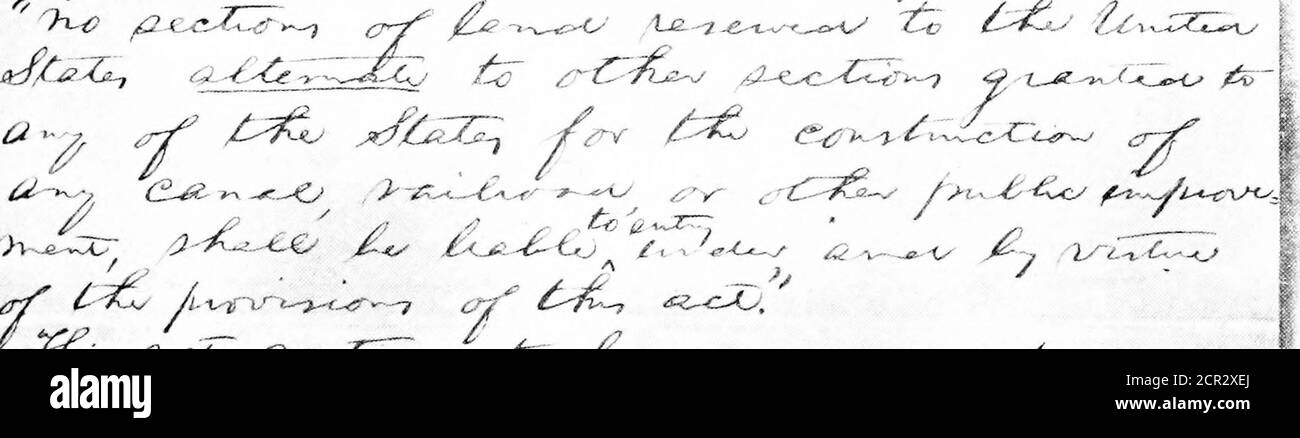 "no sections of land reserved to the United
States alternate to other sections granted to
any of the States for the construction of
any canal, railroad, or other public improve=
ment, shall be liable to entry, under and by virtue
of the provisions of this act."
alamy
Image ID: 2CR2XEJ
www.alamy.com